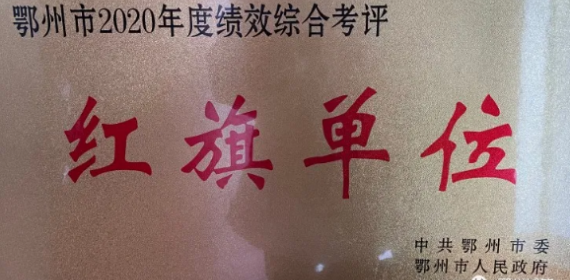 鄂州市2020年度绩效综合考评
红旗单位
中共鄂州市委
鄂州市人民政府